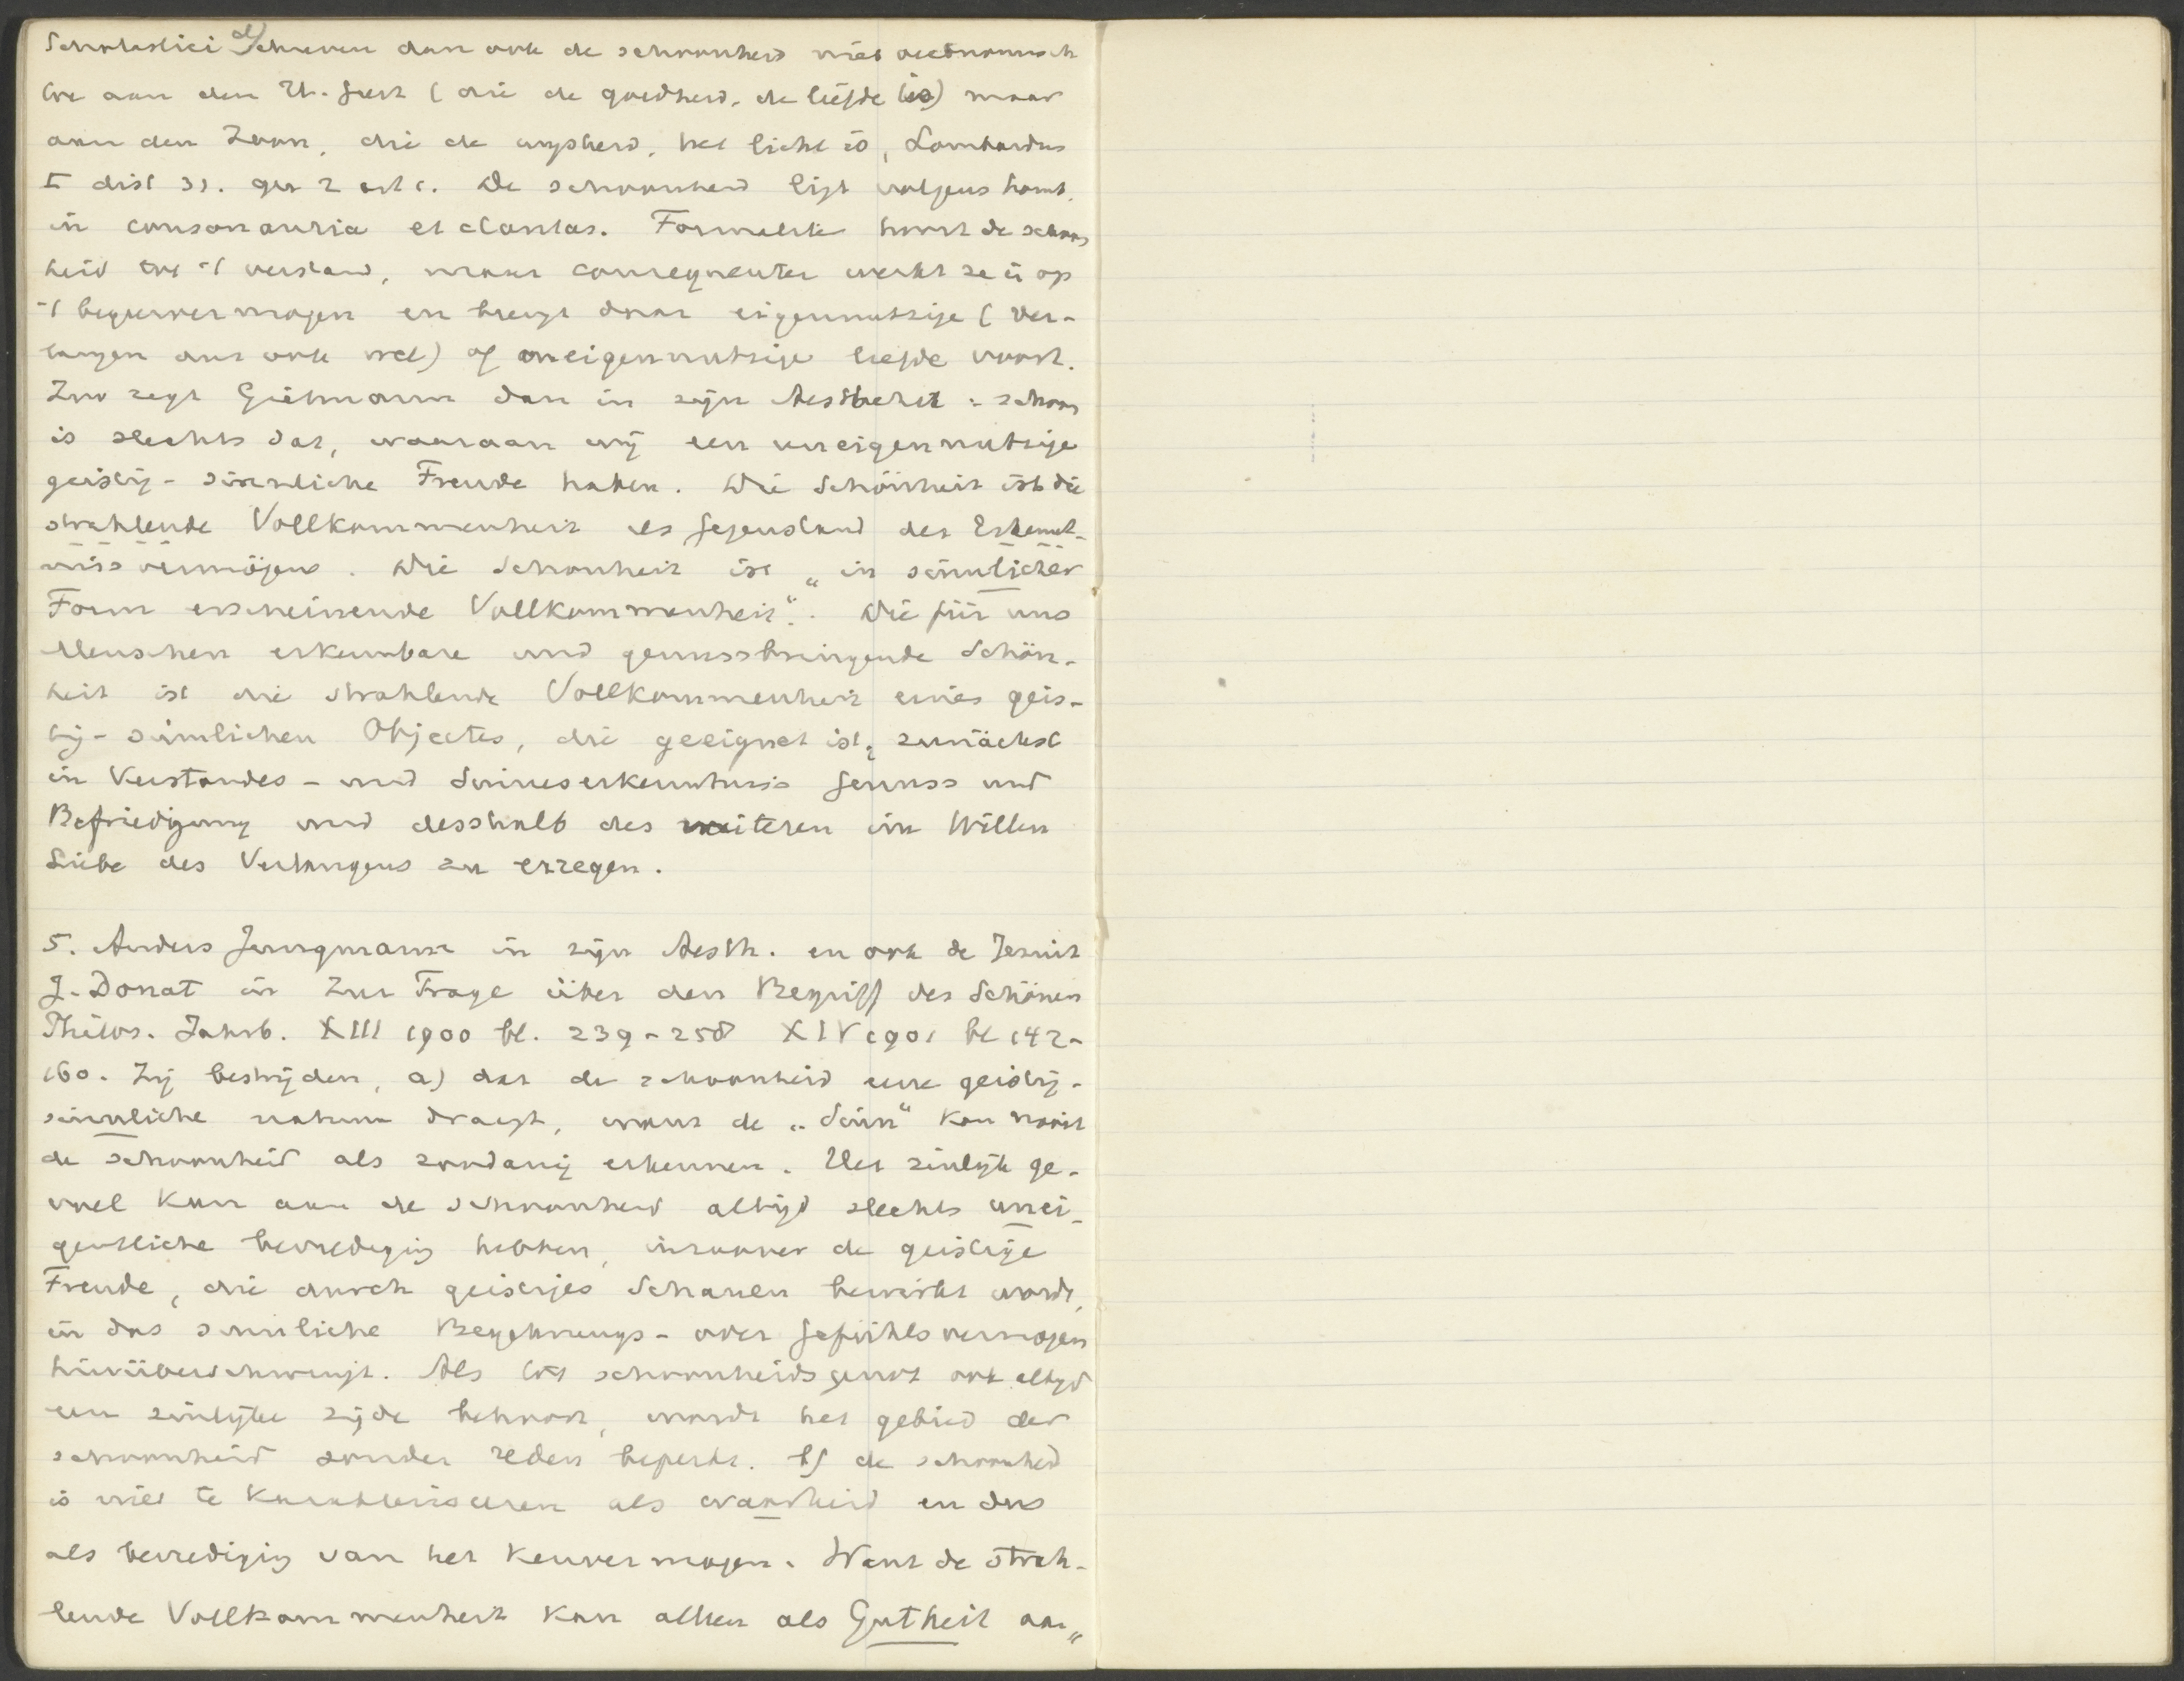 Scholastici schreven dan ook de schoonheid niet oeconomisch
toe aan den H. Geest (die de goedheid, de liefde is) maar
aan den Zoon, die de wijsheid, het licht is, Lombardus
I dist 31. qu 2 art 1. De schoonheid ligt volgens hem
in consonantia et claritas. Formaliter hoort de schoon
heid tot 't verstand, maar consequenter werkt ze in op
't begeervermogen en brengt daar eigennutzige (ver-
langen dus ook wel) of oneigennutzige liefde voort.
Zoo zegt Gietmann dan in zijn Aesthetik: schoon
is slechts dat, waaraan wij een uneigennutzige
geistig-sinnliche Freude haben. Die Schönheit ist die
strahlende Vollkommenheit als Gegenstand des Erkennt-
nissvermögens. Die Schonheit ist "in sinnlicher
Form erscheinende Vollkommenheit". Die für uns
Menschen erkennbare und genussbringende Schön-
heit ist die strahlende Vollkommenheit eines geis-
tig-sinnlichen Objectes, die geeignet ist, zunächst
in Verstandes- und Sinneserkenntniss Genuss und
Befriedigung und desshalb des weiteren im Willen
Liebe des Verlangens zu erregen.
5. Anders Jungmann in zijn Aesth. en ook de Jezuit
J. Donat in Zur Frage über den Begriff des Schönen
Philos. Jahrb. XIII 1900 bl. 239-258 XIV 1901 bl 142-
160. Zij bestrijden, a) dat de schoonheid eene geistig-
sinnliche natuur draagt, want de "Sinn" kan nooit
de schoonheid als zoodanig erkennen. Het zinlijk ge-
voel kan aan de schoonheid altijd slechts unei-
gentliche bevrediging hebben, inzoover de geistige
Freude, die durch geistiges Schauen bewirkt wordt,
in das sinnliche Begehrungs- oder Gefühlsvermogen
hinüberschwingt. Als tot schoonheidsgenot ook altijd
een zinlijke zijde behoort, wordt het gebied der
schoonheid zonder reden beperkt. b) de schoonheid
is niet te karakteriseeren als waarheid en dus
als bevrediging van het kenvermogen. Want de strah-
lende Vollkommenheit kan alleen als Gutheit aan"